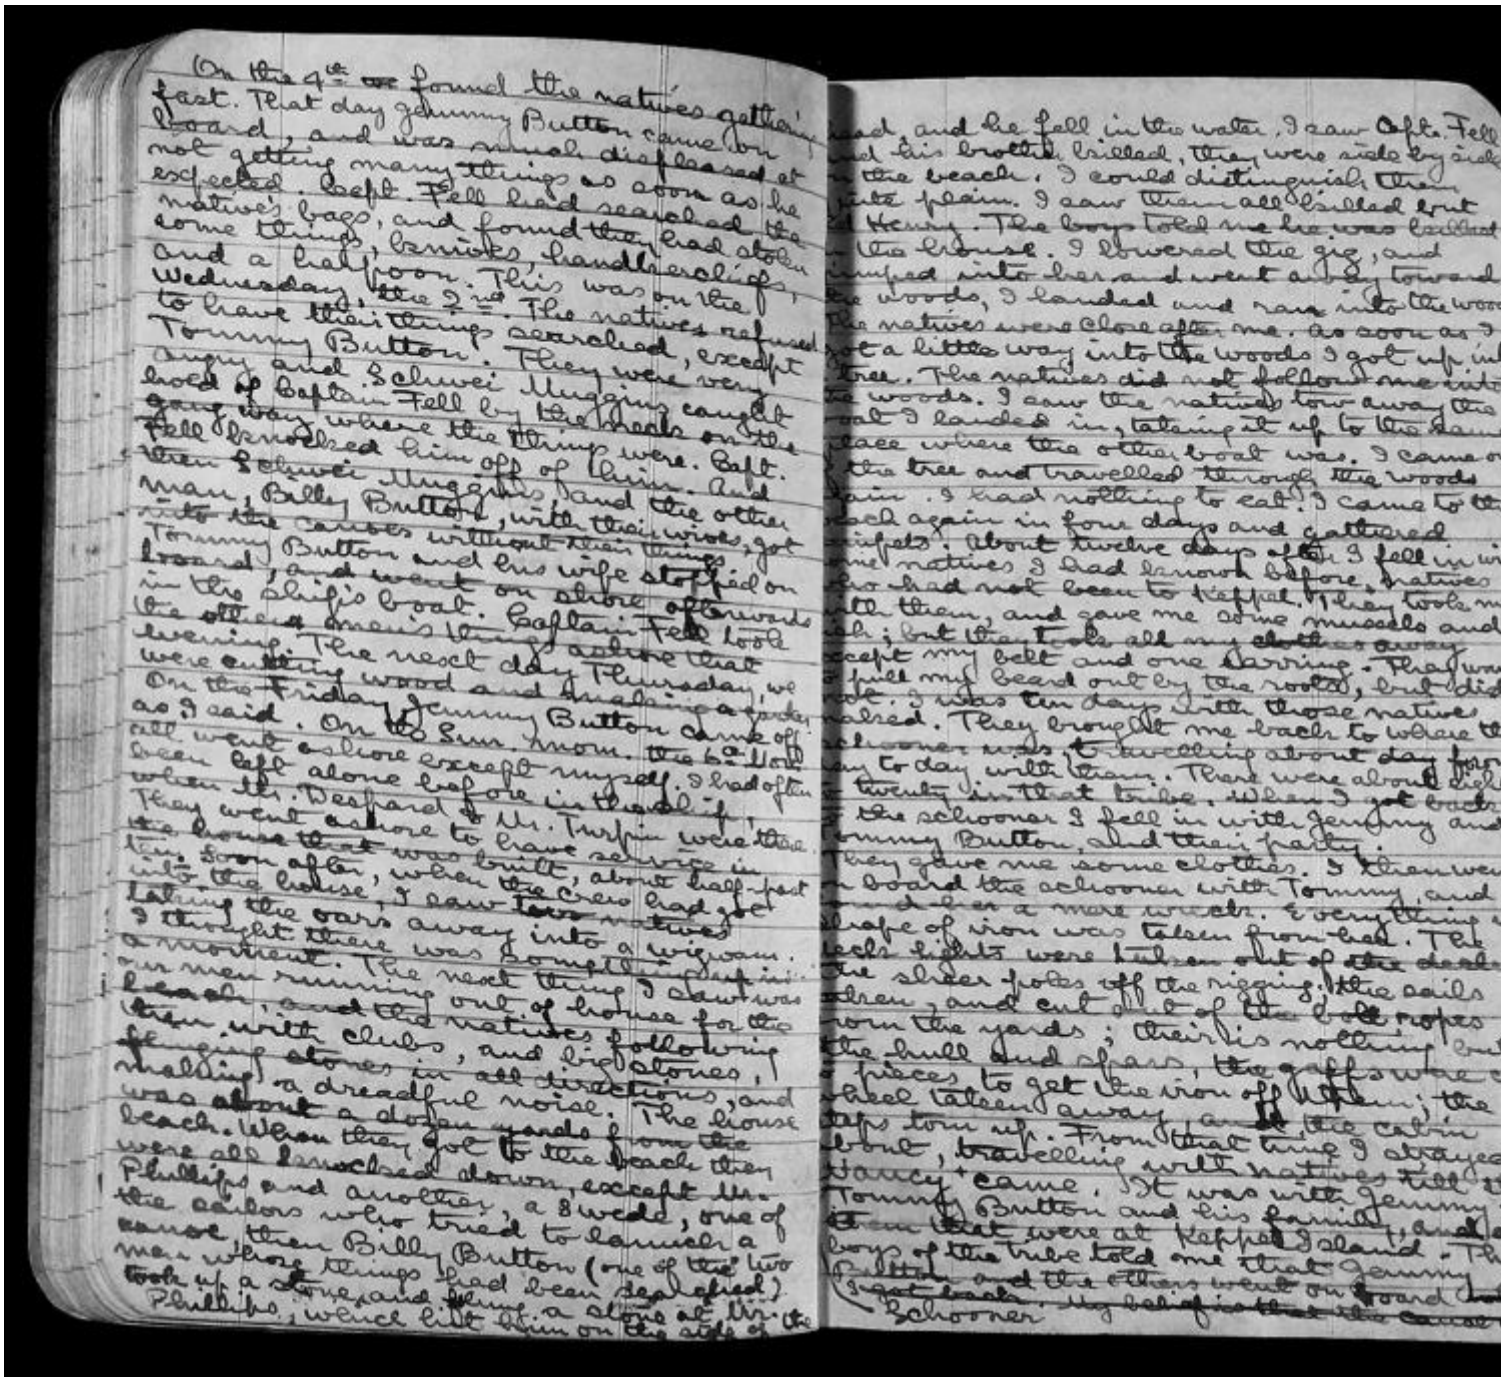 On the 4th we found the natives gathering
fast. That day Jemmy Button came on
board, and was much displeased at
not getting many things as soon as he
expected. Capt. Fell had searched the
natives bags, and found they had stolen
some things, knives, handkerchiefs,
and a harpoon. This was on the
Wednesday, the 2nd. The natives refused
to have their things searched, except
Tommy Button. They were very
angry and Schwei Muggins caught
hold of Captain Fell by the neck on the
gang way where the things were. Capt.
Fell knocked him off of him. And
then Schwei Muggins, and the other
man, Billy Button, with their wives, got
into the canoes without their things.
Tommy Button and his wife stopped on
board, and went on shore afterwards
in the ship's boat. Captain Fell took
the other men's things ashore that
evening. The next day Thursday, we
were cutting wood and making a garden
On the Friday Jemmy Button came off
as I said. On the Sun. morn. the 6th Nov.
all went ashore except myself. I had often
been left alone before in the ship,
when Mr. Despard & Mr. Turpin were there.
They went ashore to have service in
the house that was built, about half-past
ten. Soon after, when the crew had got
into the house, I saw two natives
taking the oars away into a wigwam.
I thought there was something up in
a moment. The next thing I saw was
our men running out of house for the
beach, and the natives following
them with clubs, and big stones,
flinging stones in all directions, and
making a dreadful noise. The house
was about a dozen yards from the
beach. When they got to the beach they
were all knocked down, except Mr.
Phillips and another, a Swede, one of
the sailors who tried to launch a
canoe, then Billy Button (one of the two
men whose things had been searched)
took up a stone, and flung a stone at Mr.
Phillips, which hit him on the side of the
head, and he fell in the water. I saw Capt. Fell
and his brother killed, they were side by side
on the beach. I could distinguish them
quite plain. I saw them all killed but
Henry. The boys told me he was killed
in the house. I lowered the gig, and
jumped into her and went away toward
the woods, I landed and ran into the woods
The natives were close after me. As soon as I
got a little way into the woods I got up in
tree. The natives did not follow me into
the woods. I saw the natives tow away the
boat I landed in, taking it up to the same
place where the other boat was. I came
the tree and travelled through the woods
again. I had nothing to eat. I came to the
beach again in four days and gathered
limpets. About twelve days after I fell in with
some natives I had known before, natives
who had not been to Keppel. They took me
with them, and gave me some mussels and
fish; but they took all my clothes away
except my belt and one earring. They
pull my beard out by the roots, but did
not. I was ten days with those natives
naked. They brought me back to where the
schooner was, travelling about day from
day to day with them. There were about
twenty in that tribe. When I got back
to the schooner I fell in with Jemmy and
Tommy Button, and their party.
They gave me some clothes. I then went
on board the schooner with Tommy, and
found her a mere wreck. Everything
shape of iron was taken from her. The
deck lights were taken out of the deck
the sheer poles off the rigging, the sails
taken, and cut out of the bolt ropes
from the yards; their is nothing but
the hull and spars, the gaffs were
pieces to get the iron off them; the
wheel taken away, and the cabin
steps torn up. From that time I strayed
about, travelling with natives till the
Nancy came. It was with Jemmy
Tommy Button and his family, and
them that were at Keppel Island. The
boys of the tribe told me that Jemmy
Button and the others went on board
(I got back. My belief is that the canoe
Schooner